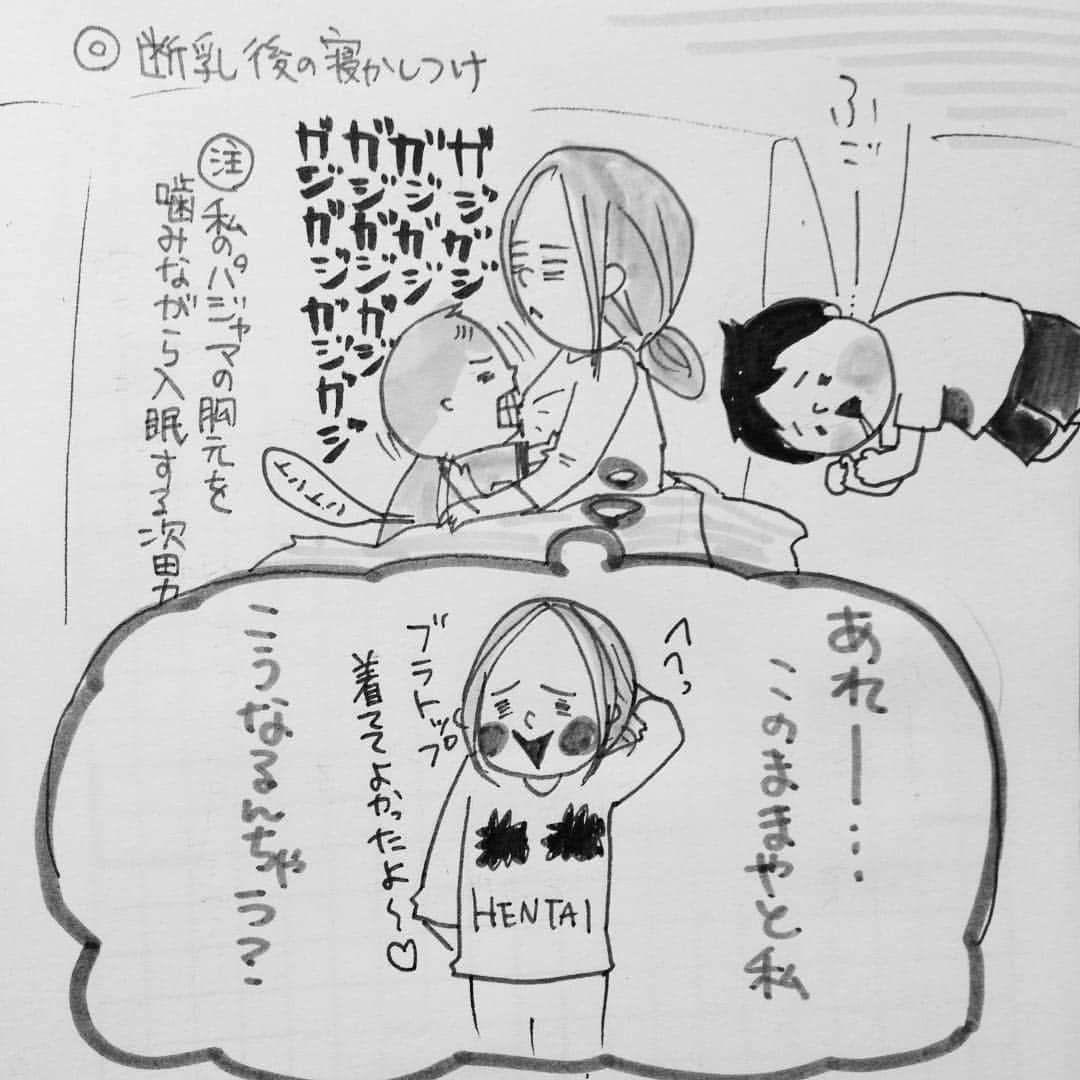 ◎断乳後の寝かしつけ
ふご
ガジガジ
ガジガジ
ガジガジガジ
ガジガジガジガジ
注 私のパジャマの胸元を
噛みながら入眠する次男
あれー…
このままやと私
へへっ
ブラトップ
着ててよかったよ〜♡
HENTAI
こうなるんちゃう?